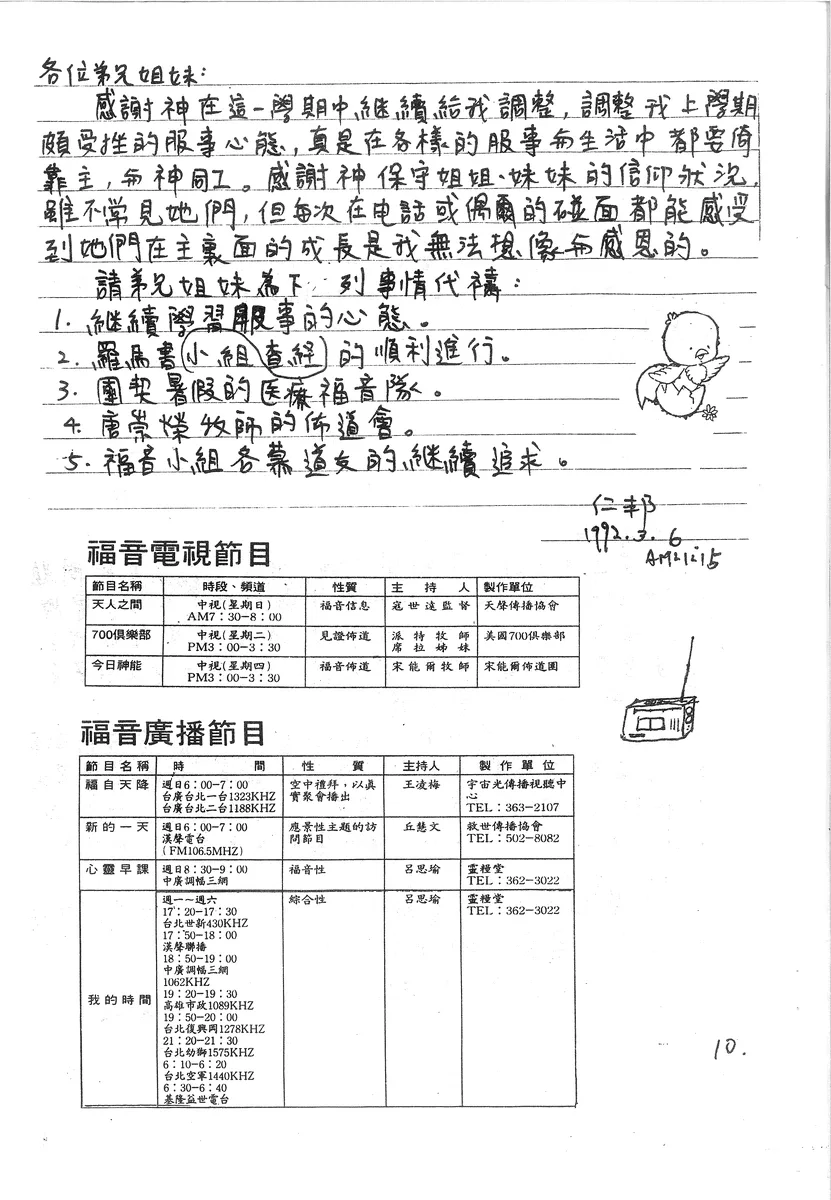 各位弟兄姐妹:
感謝神在這一學期中繼續給我調整,調整我上學期
頗受挫的服事心態,真是在各樣的服事与生活中都要倚
靠主,与神同工。感謝神保守姐姐、妹妹的信仰狀況,
雖不常見她們,但每次在电話或偶爾的碰面都能感受
到她們在主裏面的成長是我無法想像与感恩的。
請弟兄姐妹為下列事情代禱:
1. 繼續學習服事的心態。
2. 羅馬書(小組查經)的順利進行。
3. 團契暑假的医療福音隊。
4. 唐崇榮牧師的佈道會。
5. 福音小組各慕道友的繼續追求。
仁邦
1992.3.6
AM 12:15
福音電視節目
節目名稱 時段、頻道 性質 主持人 製作單位
天人之間 中視(星期日) 福音信息 寇世遠監督 天聲傳播協會
AM7:30-8:00
700俱樂部 中視(星期二) 見證佈道 派特牧師 美國700俱樂部
PM3:00-3:30 席拉姊妹
今日神能 中視(星期四) 福音佈道 宋能爾牧師 宋能爾佈道團
PM3:00-3:30
福音廣播節目
節目名稱 時間 性質 主持人 製作單位
福自天降 週日6:00-7:00 空中禮拜,以真 王凌梅 宇宙光傳播視聽中
台廣台北一台1323KHZ 實聚會播出 心
台廣台北二台1188KHZ TEL:363-2107
新的一天 週日6:00-7:00 應景性主題的訪 丘慧文 救世傳播協會
漢聲電台 問節目 TEL:502-8082
(FM106.5MHZ)
心靈早課 週日8:30-9:00 福音性 呂思瑜 靈糧堂
中廣調幅三網 TEL:362-3022
我的時間 週一~週六 綜合性 呂思瑜 靈糧堂
17:20-17:30 TEL:362-3022
台北世新430KHZ
17:50-18:00
漢聲聯播
18:50-19:00
中廣調幅三網
1062KHZ
19:20-19:30
高雄市政1089KHZ
19:50-20:00
台北復興岡1278KHZ
21:20-21:30
台北幼獅1575KHZ
6:10-6:20
台北空軍1440KHZ
6:30-6:40
基隆益世電台
10.